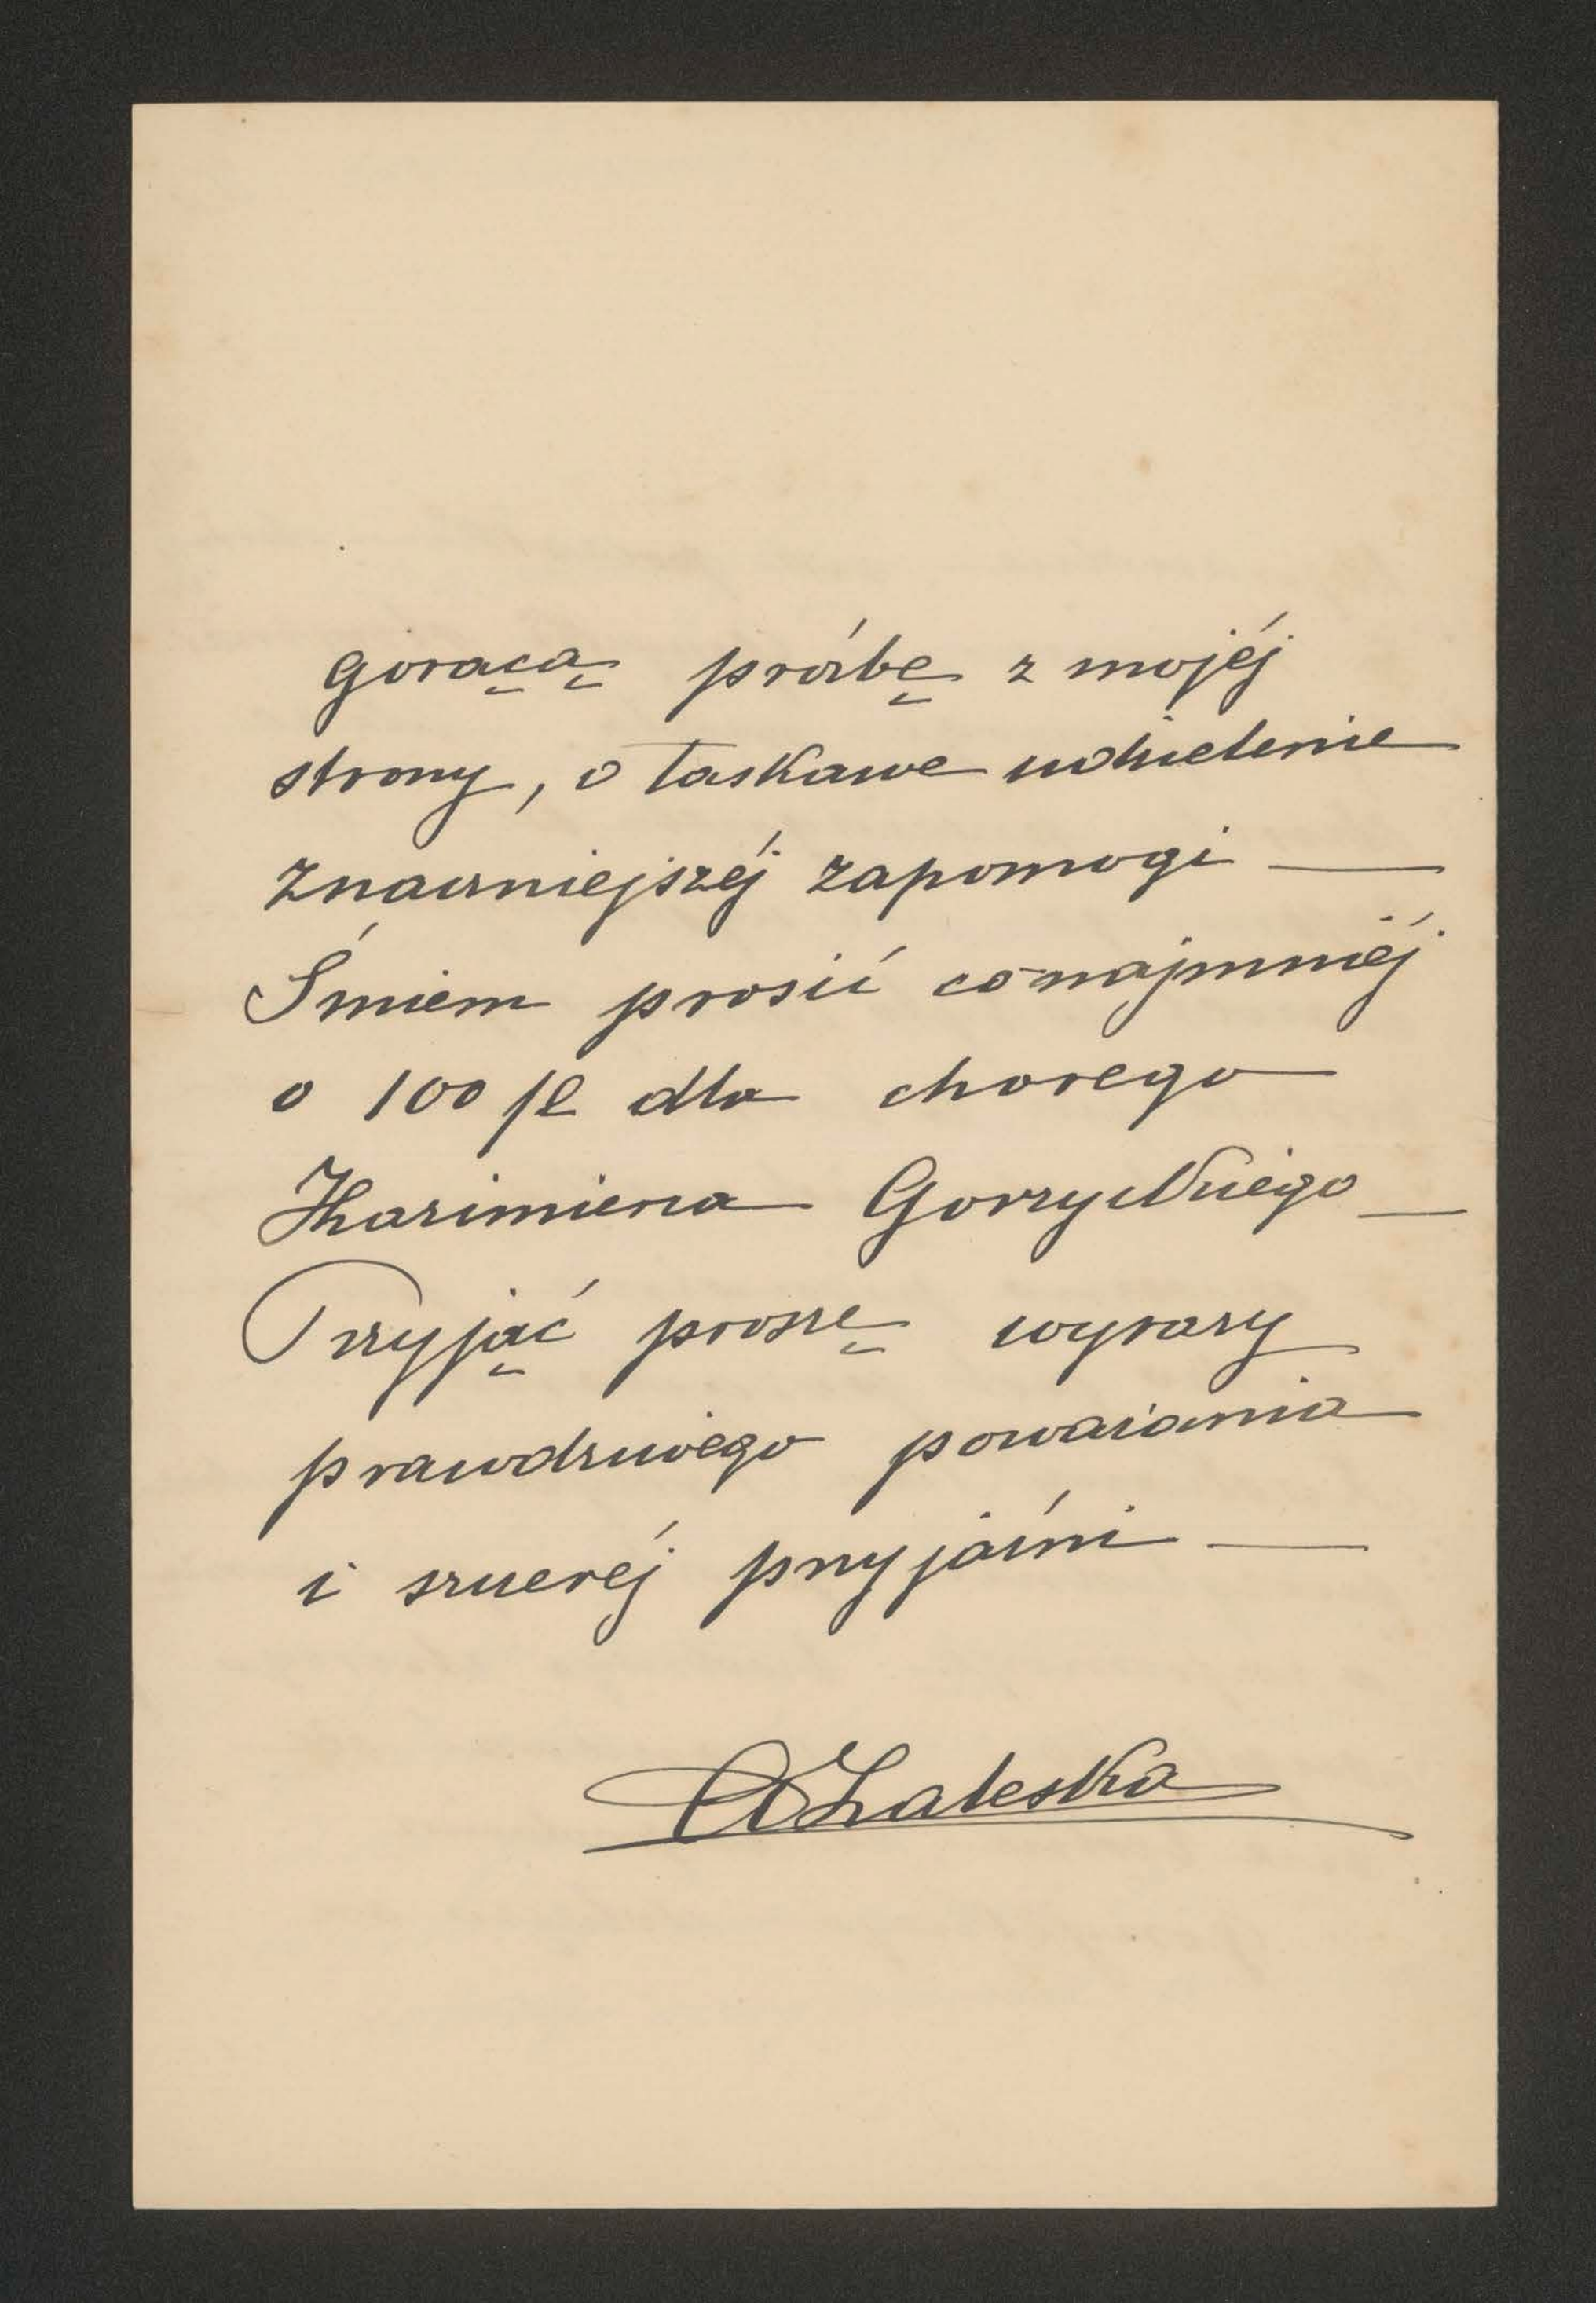 gorącą prośbę z mojéj
strony, o łaskawe udzielenie
znaczniejszéj zapomogi —
Śmiem prosić conajmniéj
o 100 fl dla chorego
Kazimierza Gorzyckiego —
Przyjąć proszę wyrazy
prawdziwego poważania
i szczeréj przyjaźni —
A Zaleska